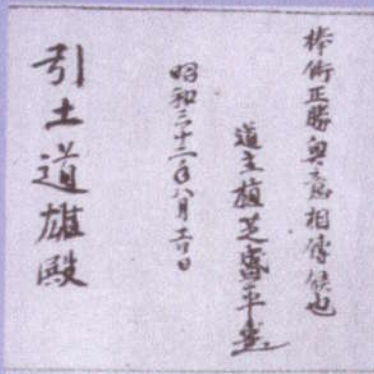 棒術正勝奥意相傳候也
道主植芝盛平
昭和三十二年八月
引土道雄殿